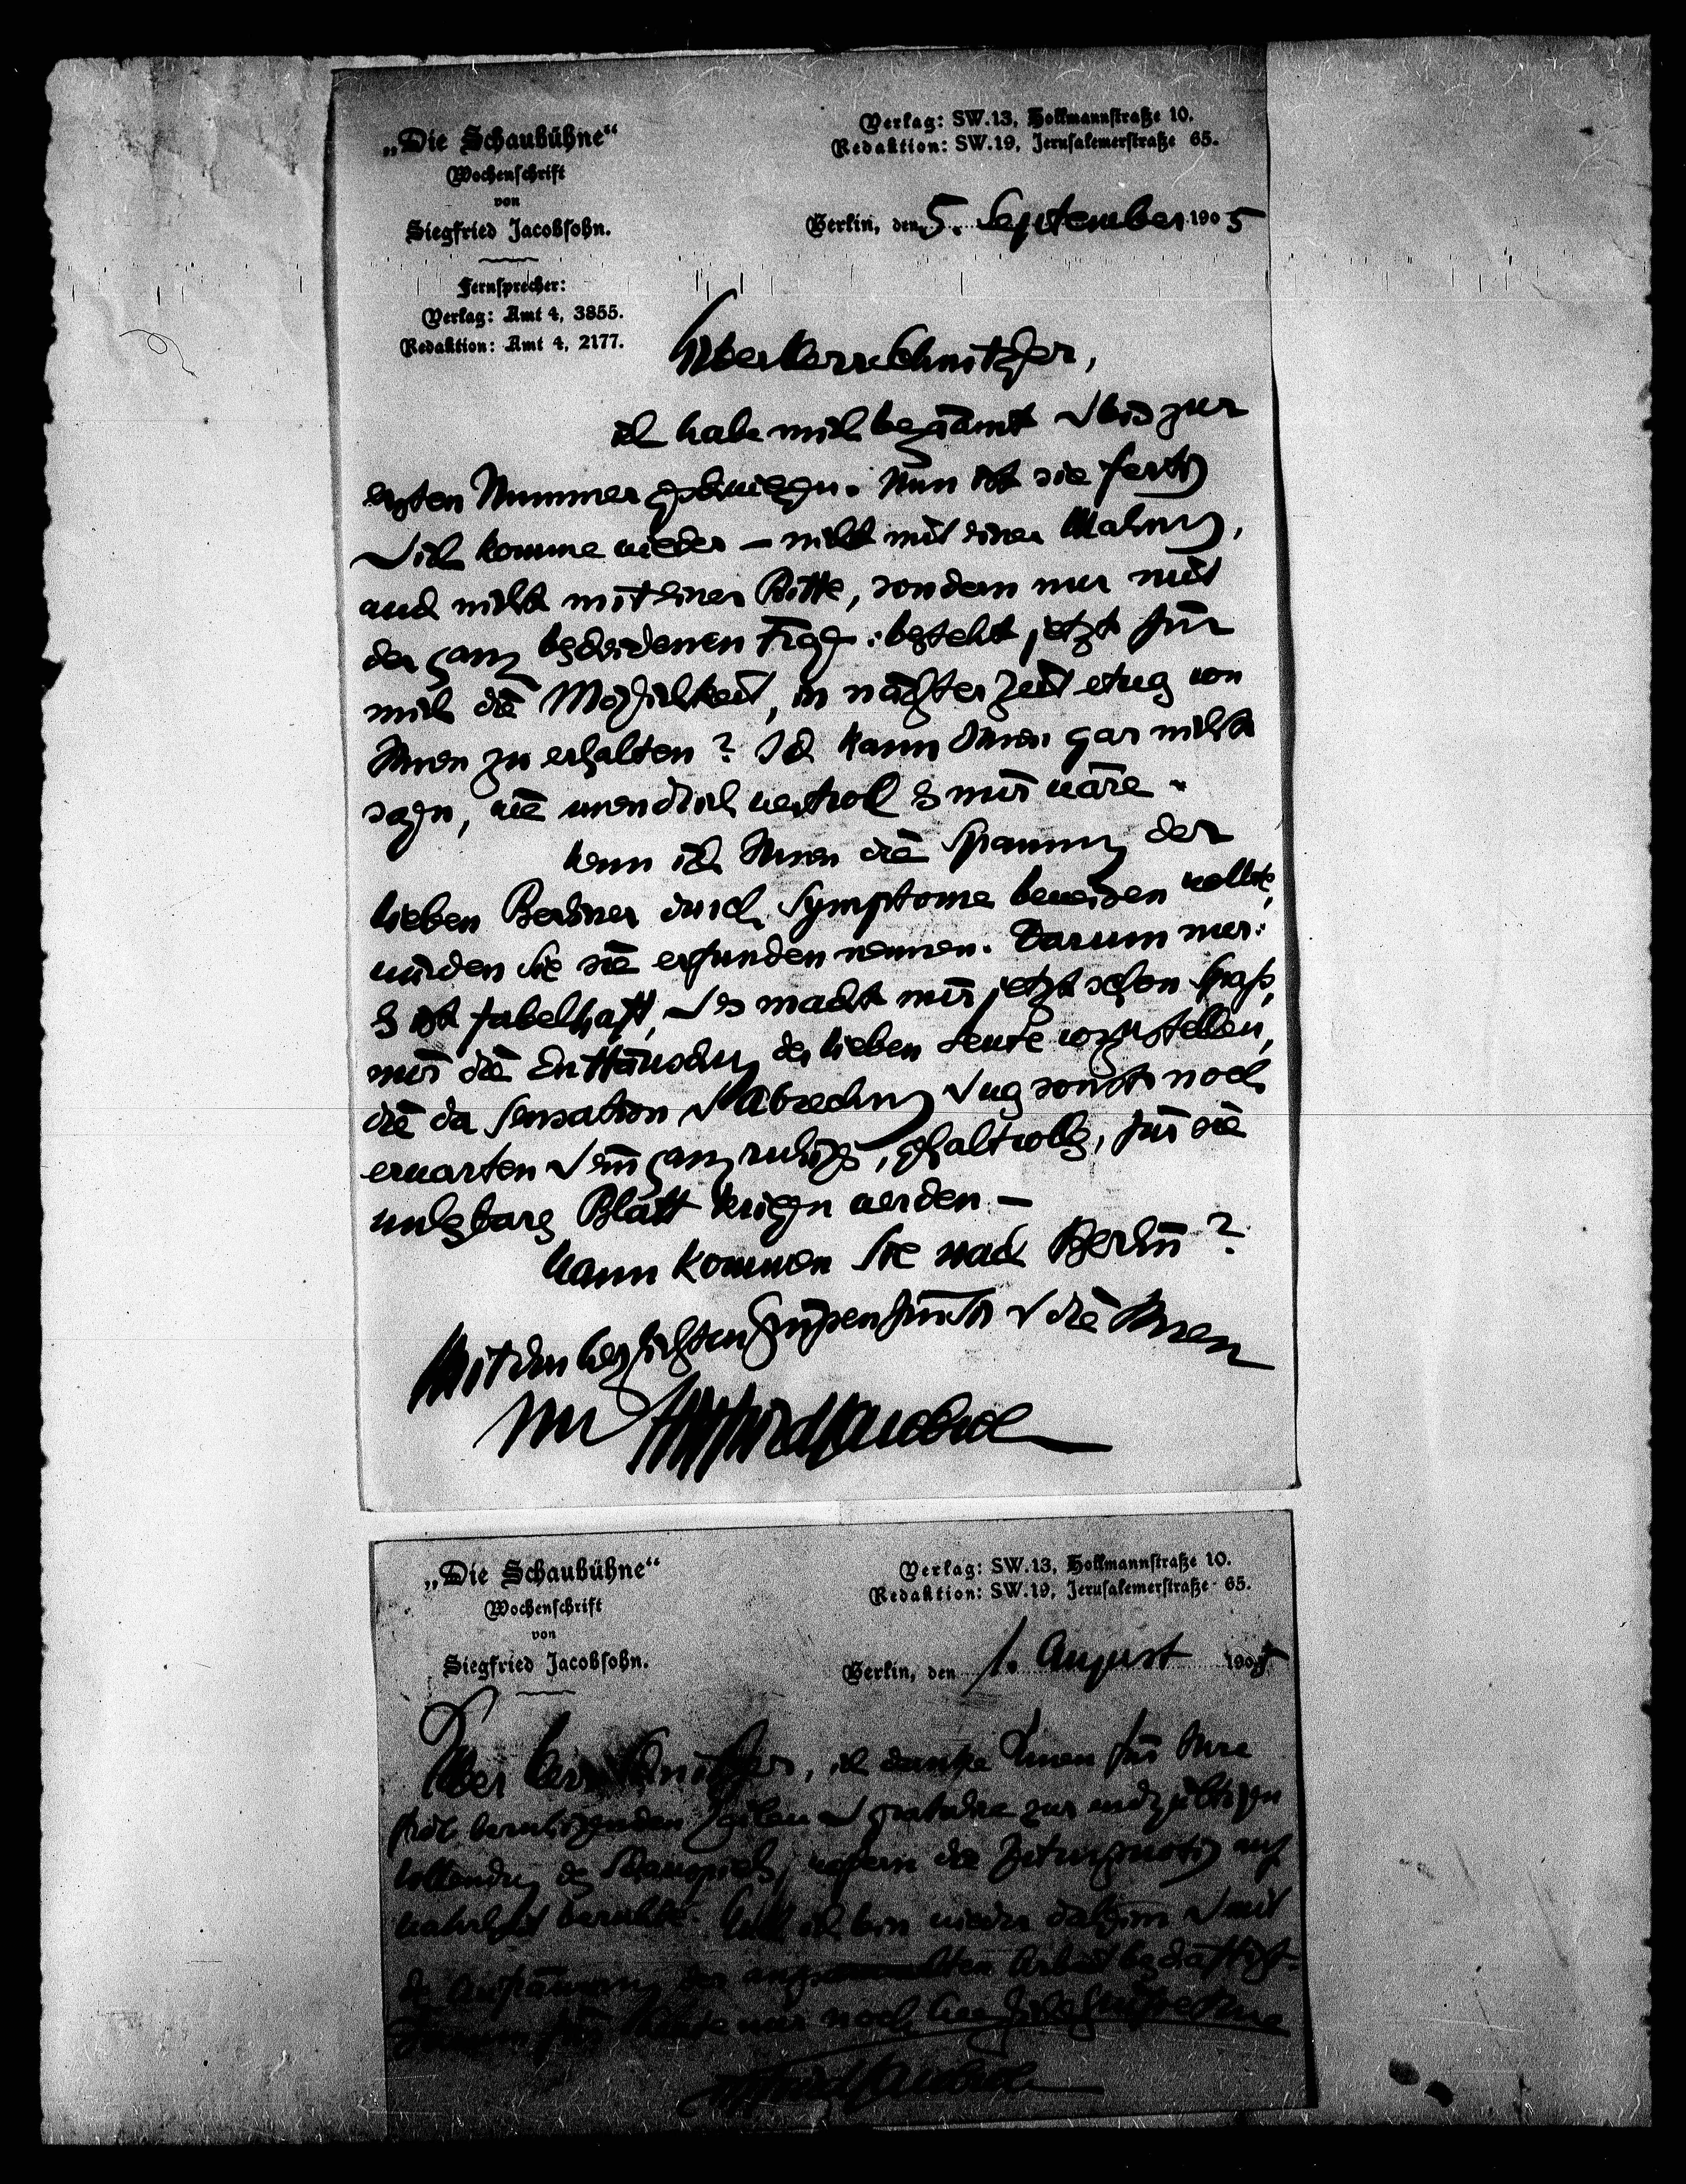 „Die Schaubühne“
Wochenschrift
von
Siegfried Jacobsohn.
Fernsprecher:
Verlag: Amt 4, 3855.
Redaktion: Amt 4, 2177.
Verlag: SW.13, Hollmannstraße 10.
Redaktion: SW.19, Jerusalemerstraße 65.
Berlin, den 5. September 1905
Lieber Herr Schnitzler,
ich habe mich bezähmt u bis zur
ersten Nummer geschwiegen. Nun ist sie fertig
u ich komme wieder – nicht mit einer Mahnung,
auch nicht mit einer Bitte, sondern nur mit
der ganz bescheidenen Frage: besteht jetzt für
mich die Möglichkeit, in nächster Zeit etwas von
Ihnen zu erhalten? Ich kann Ihnen gar nicht
sagen, wie unendlich wertvoll es mir wäre.
Wenn ich Ihnen die Spannung der
lieben Berliner durch Symptome beweisen wollte,
würden Sie sie erfunden nennen. Darum nur:
es ist fabelhaft, u es macht mir jetzt schon Spaß,
mir die Enttäuschung der lieben Leute vorzustellen,
die da Sensation u Abrechnung u was sonst noch
erwarten u ein ganz ruhiges, gehaltvolles, für sie
unlesbares Blatt kriegen werden. –
Wann kommen Sie nach Berlin?
Mit den herzlichsten Grüßen für Sie u die Ihren
Ihr Siegfried Jacobsohn
„Die Schaubühne“
Wochenschrift
von
Siegfried Jacobsohn.
Verlag: SW.13, Hollmannstraße 10.
Redaktion: SW.19, Jerusalemerstraße 65.
Berlin, den 1. August 1905
Lieber Herr Schnitzler, ich danke Ihnen für Ihre
beruhigenden Zeilen u gratuliere zur endgültigen
Vollendung des Schauspiels, wofern die Zeitungsnotiz auf
Wahrheit beruhte. ich bin wieder daheim u mit
der Arbeit beschäftigt.
für heute nur noch herzliche Grüße Ihres
Siegfried Jacobsohn